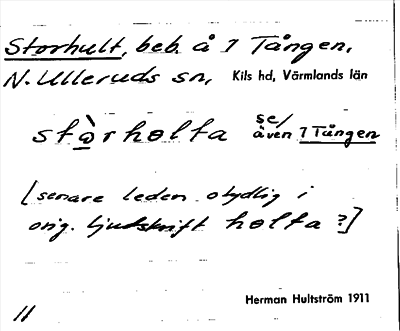 Storhult, beb. å 1 Tången,
N. Ulleruds sn, Kils hd, Värmlands län
stὼrhølta se/även 1 Tången
[senare leden otydlig i
orig. ljudskrift hølta ?]
Herman Hultström 1911
11